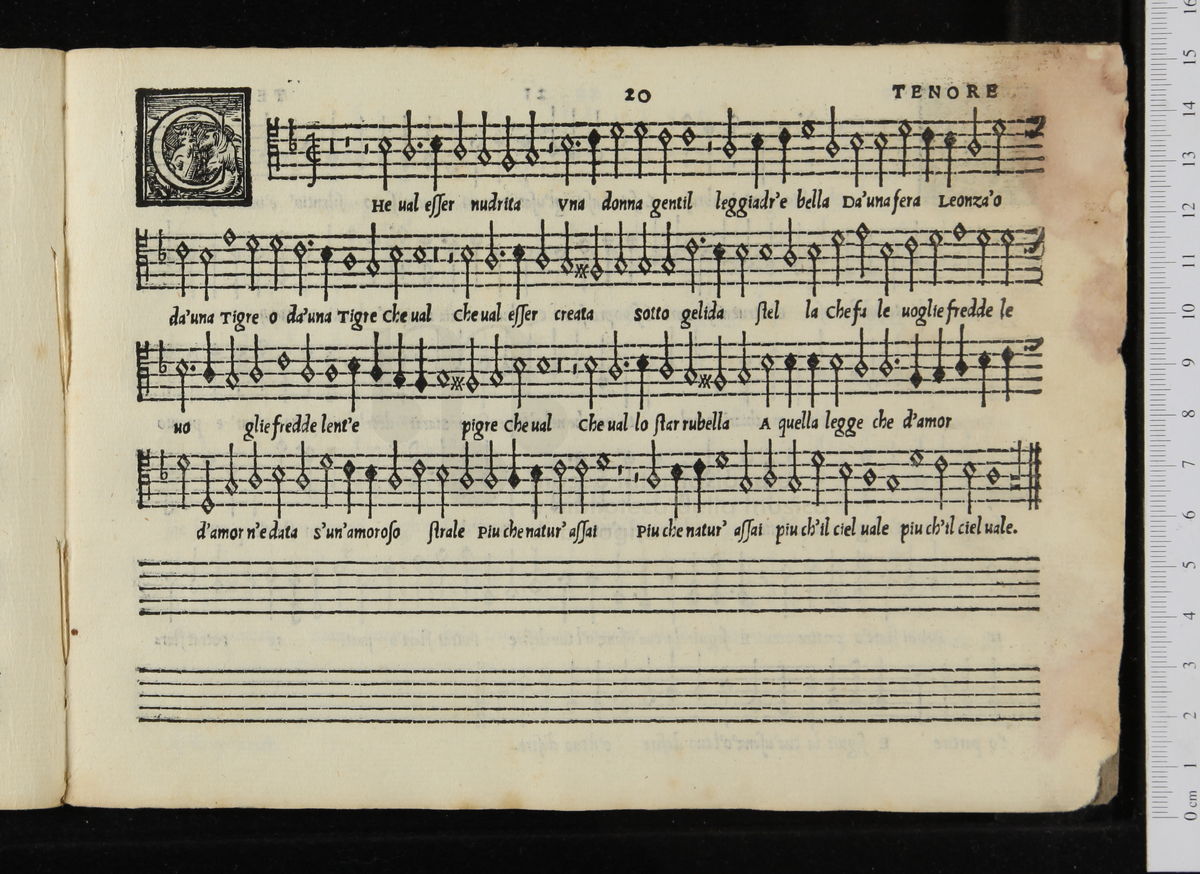 20 TENORE
CHe ual eſſer nudrita Vna donna gentil leggiadr'e bella Da'una fera Leonza'o
da'una Tigre o da'una Tigre Che ual Che ual eſſer creata sotto gelida ſtel la Che fa le uoglie fredde le
uo glie fredde lent'e pigre Che ual Che ual lo ſtar rubella A quella legge che d'amor
d'amor n'e data s'un'amoroso ſtrale Piu che natur' aſſai Piu che natur' aſſai piu ch'il ciel uale piu ch'il ciel uale.
16
15
14
13
12
11
10
9
8
7
6
5
4
3
2
1
0 cm